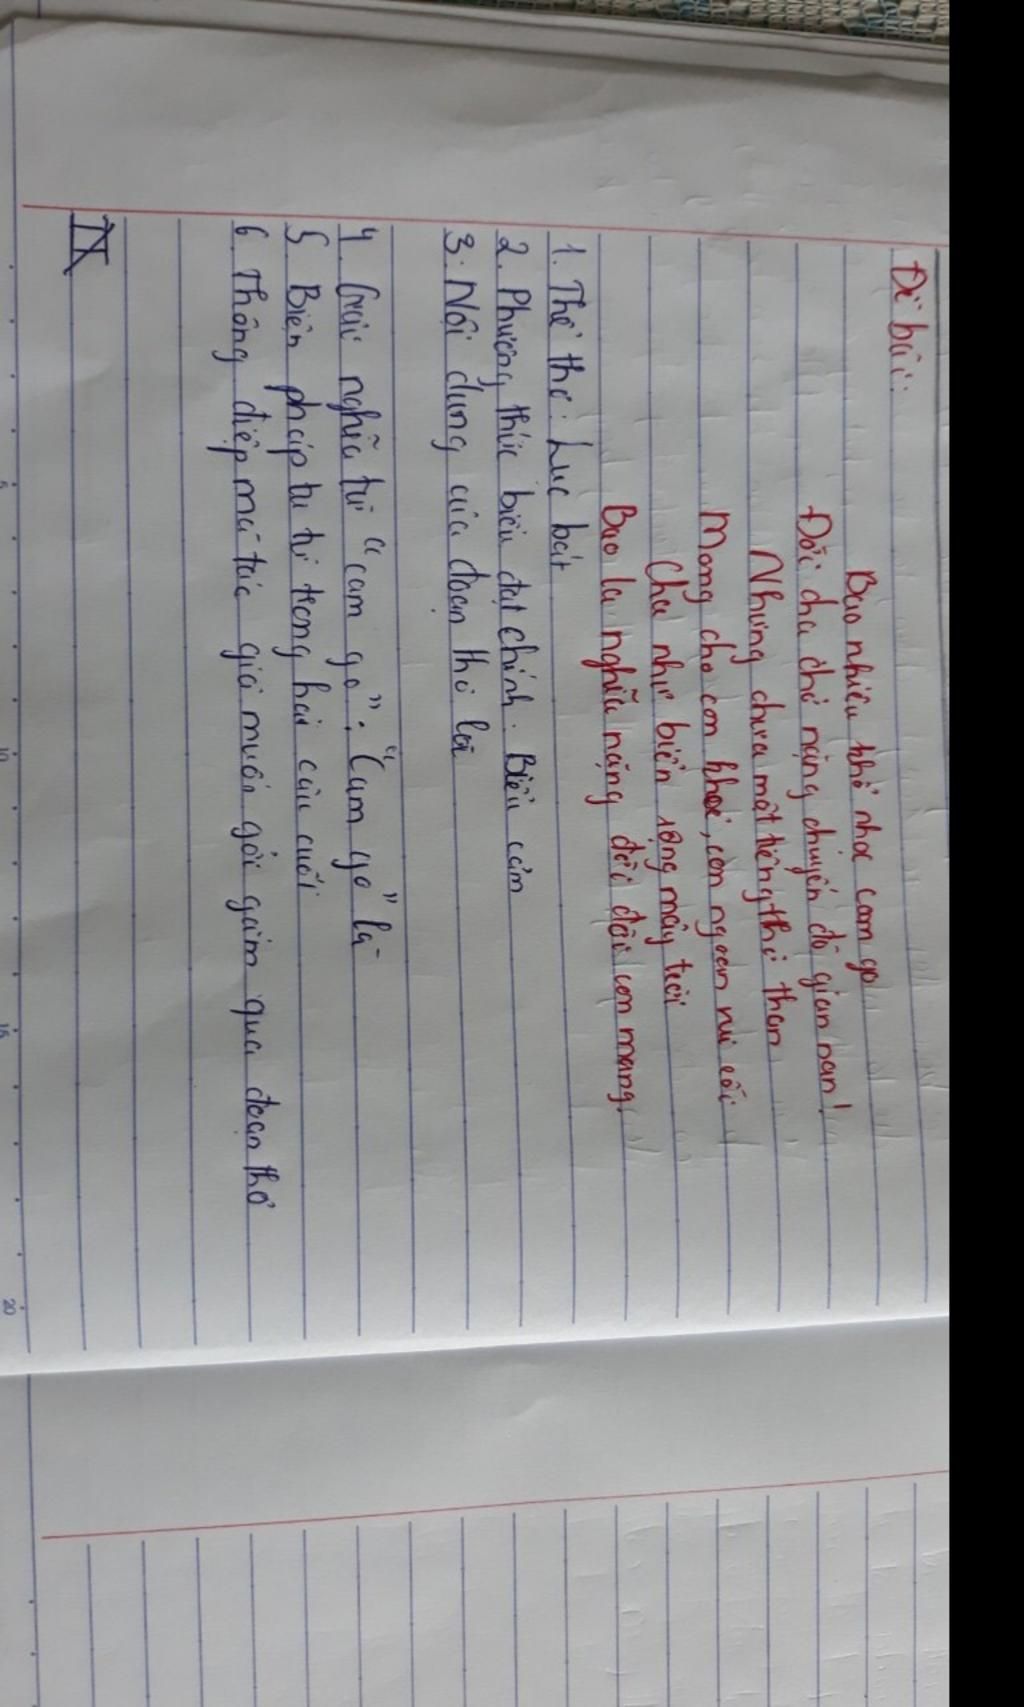 Đề bài:
Bao nhiêu khổ nhọc cam go
Đời cha chở nặng chuyến đò gian nan!
Nhưng chưa một tiếng thở than
Mong cho con khoẻ, con ngoan vui rồi
Cha như biển rộng mây trời
Bao la nghĩa nặng đời đời con mang.
1. Thể thơ: Lục bát
2. Phương thức biểu đạt chính: Biểu cảm
3. Nội dung của đoạn thơ là
4. Giải nghĩa từ "cam go": "Cam go" là
5. Biện pháp tu từ trong hai câu cuối
6. Thông điệp mà tác giả muốn gởi gắm qua đoạn thơ
5
10
15
20